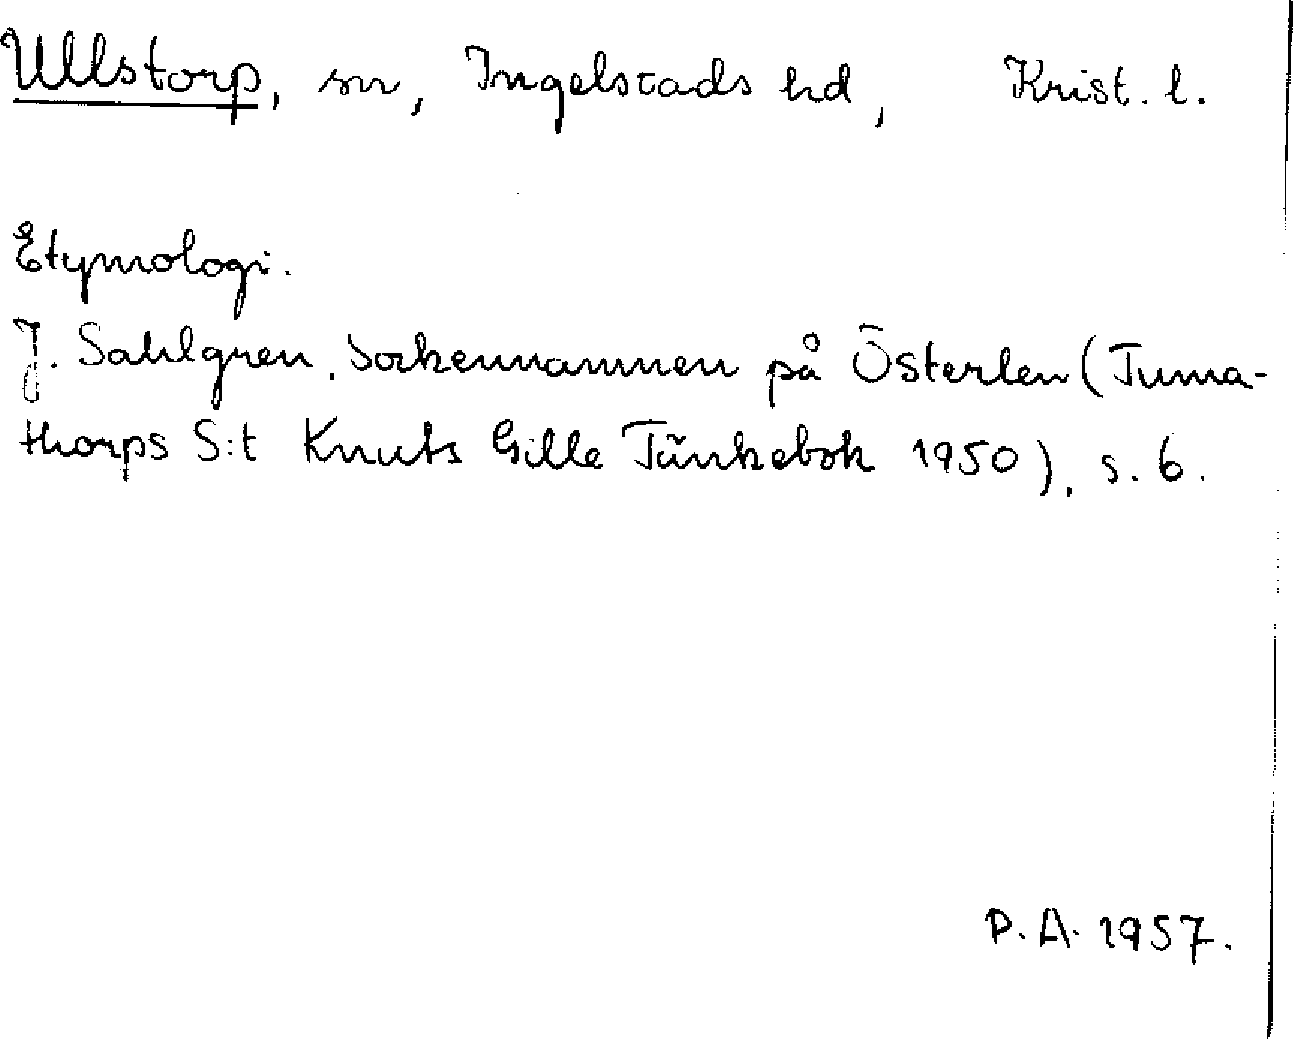 Ullstorp, sn, Ingelstads hd, Krist. l.
Etymologi.
J. Sahlgren, Sockennamnen på Österlen (Tuma-
thorps S:t Knuts Gille Tänkebok 1950), s. 6.
P. A. 1957.